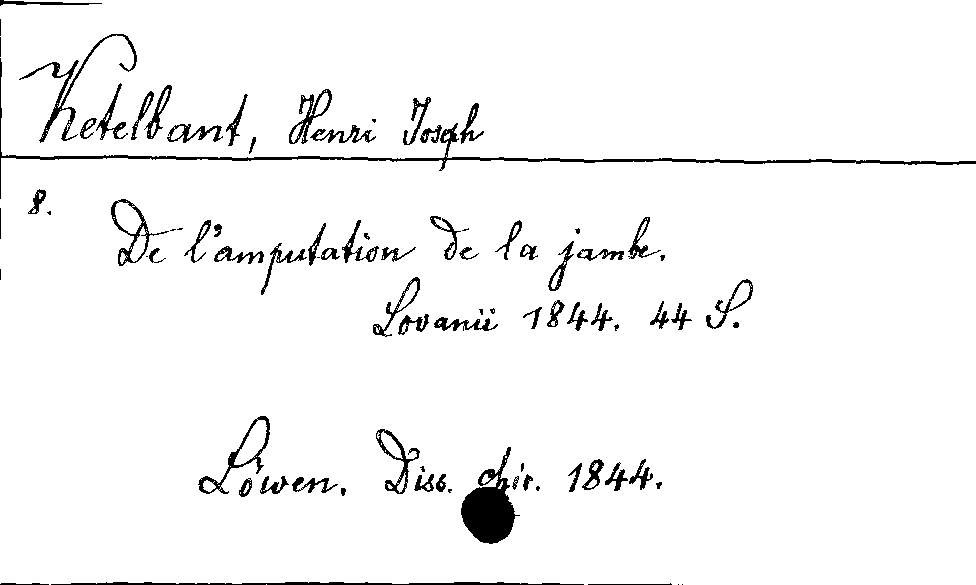 Ketelbant, Henri Joseph
8.
De l'amputation de la jambe.
Lovanii 1844. 44 S.
Löwen. Diss. chir. 1844.